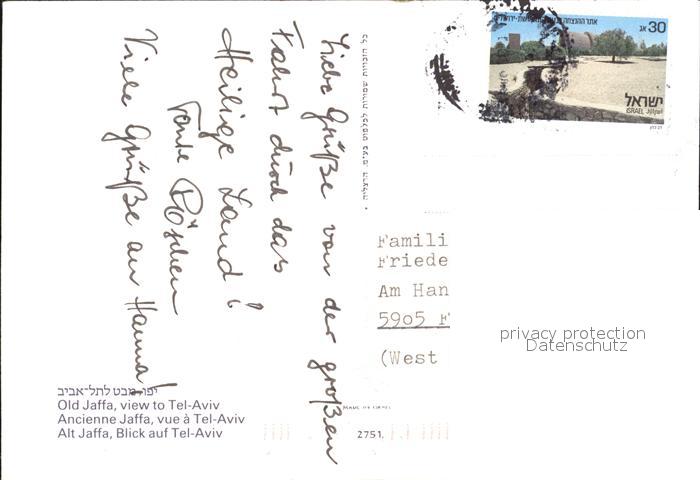 Liebe Grüße von der großen
Fahrt durch das
Heilige Land!
Tante Röschen
Viele Grüße an Hanna!
יפו, מבט לתל-אביב
Old Jaffa, view to Tel-Aviv
Ancienne Jaffa, vue à Tel-Aviv
Alt Jaffa, Blick auf Tel-Aviv
כל הזכויות שמורות לפלפוט בע״מ. הרצליה
MADE IN ISRAEL
2751.
30 אג
ישראל
ISRAEL اسرائيل
Famili
Friede
Am Han
5905 F
(West
privacy protection
Datenschutz